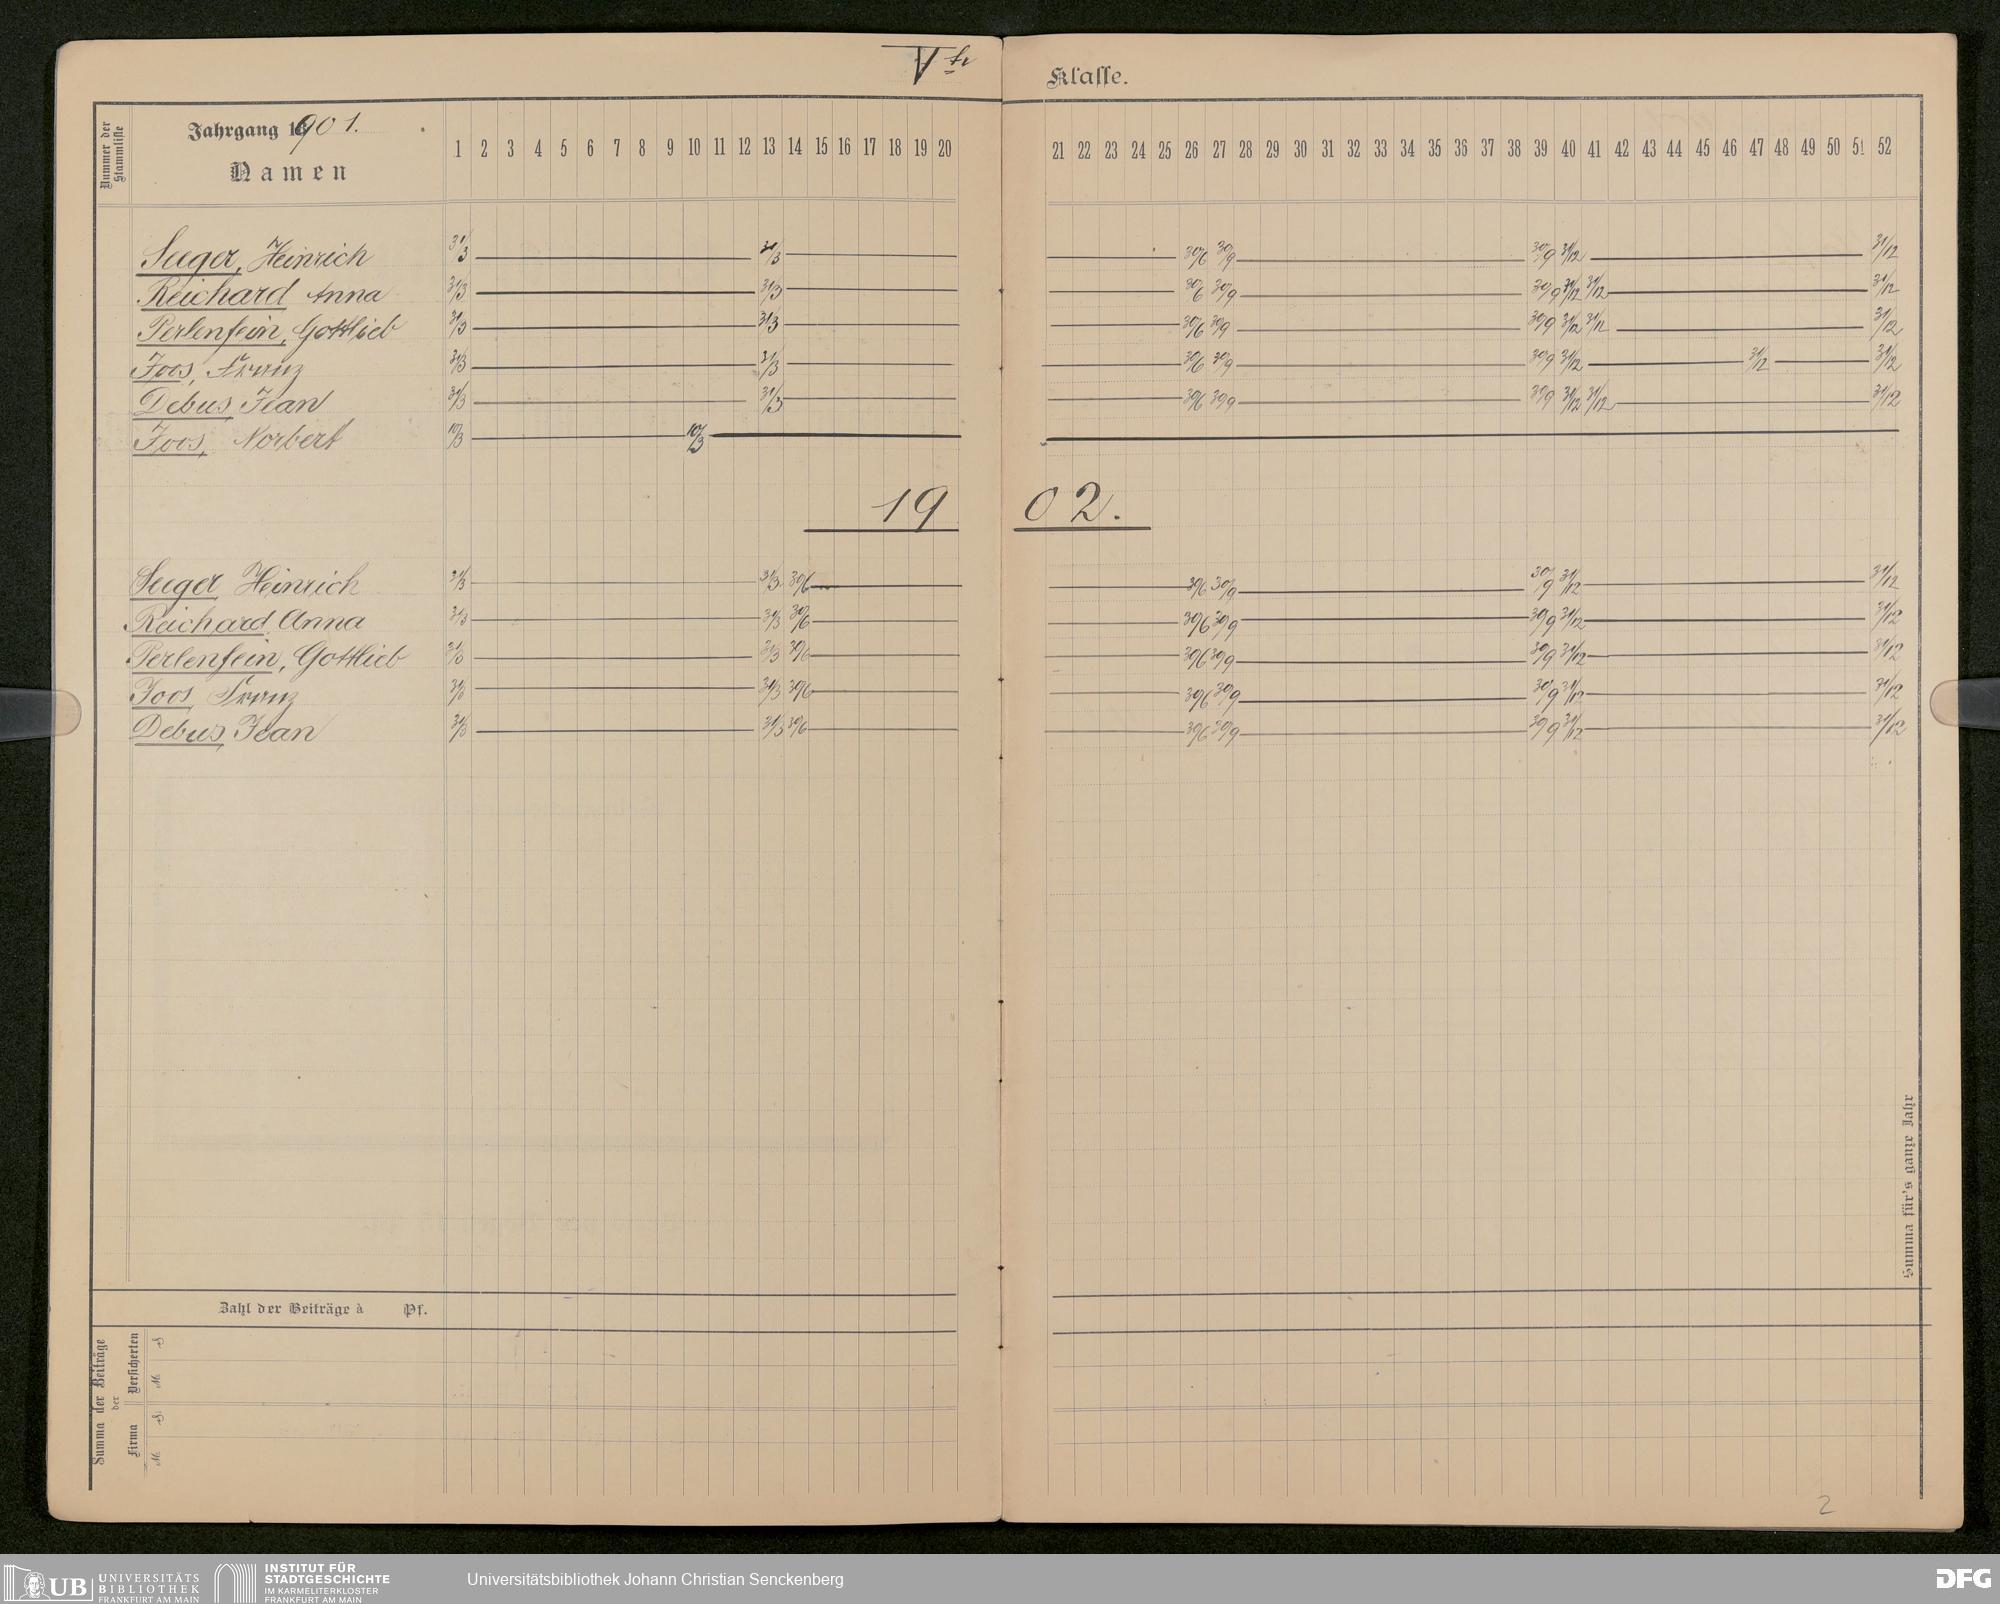 Vte Klasse.
Nummer der Stammliste
Jahrgang 1901.
Namen
1 2 3 4 5 6 7 8 9 10 11 12 13 14 15 16 17 18 19 20 21 22 23 24 25 26 27 28 29 30 31 32 33 34 35 36 37 38 39 40 41 42 43 44 45 46 47 48 49 50 51 52
Seeger, Heinrich 31/3 31/3 30/6 30/9 30/9 31/12 31/12
Reichard Anna 31/3 31/3 30/6 30/9 30/9 31/12 31/12 31/12
Perlenfein, Gottlieb 31/3 31/3 30/6 30/9 30/9 31/12 31/12 31/12
Joos, Franz 31/3 31/3 30/6 30/9 30/9 31/12 31/12 31/12
Debus, Jean 31/3 31/3 30/6 30/9 30/9 31/12 31/12 31/12
Joos, Norbert 10/3 10/3
1902.
Seeger, Heinrich 31/3 31/3 30/6 30/6 30/9 30/9 31/12 31/12
Reichard Anna 31/3 31/3 30/6 30/6 30/9 30/9 31/12 31/12
Perlenfein, Gottlieb 31/3 31/3 30/6 30/6 30/9 30/9 31/12 31/12
Joos, Franz 31/3 31/3 30/6 30/6 30/9 30/9 31/12 31/12
Debus, Jean 31/3 31/3 30/6 30/6 30/9 30/9 31/12 31/12
Summa für's ganze Jahr
Zahl der Beiträge à Pf.
Summa der Beiträge
der
Versicherten
Firma
M.
M.
2
UB UNIVERSITÄTS
BIBLIOTHEK
FRANKFURT AM MAIN
INSTITUT FÜR
STADTGESCHICHTE
IM KARMELITERKLOSTER
FRANKFURT AM MAIN
Universitätsbibliothek Johann Christian Senckenberg
DFG